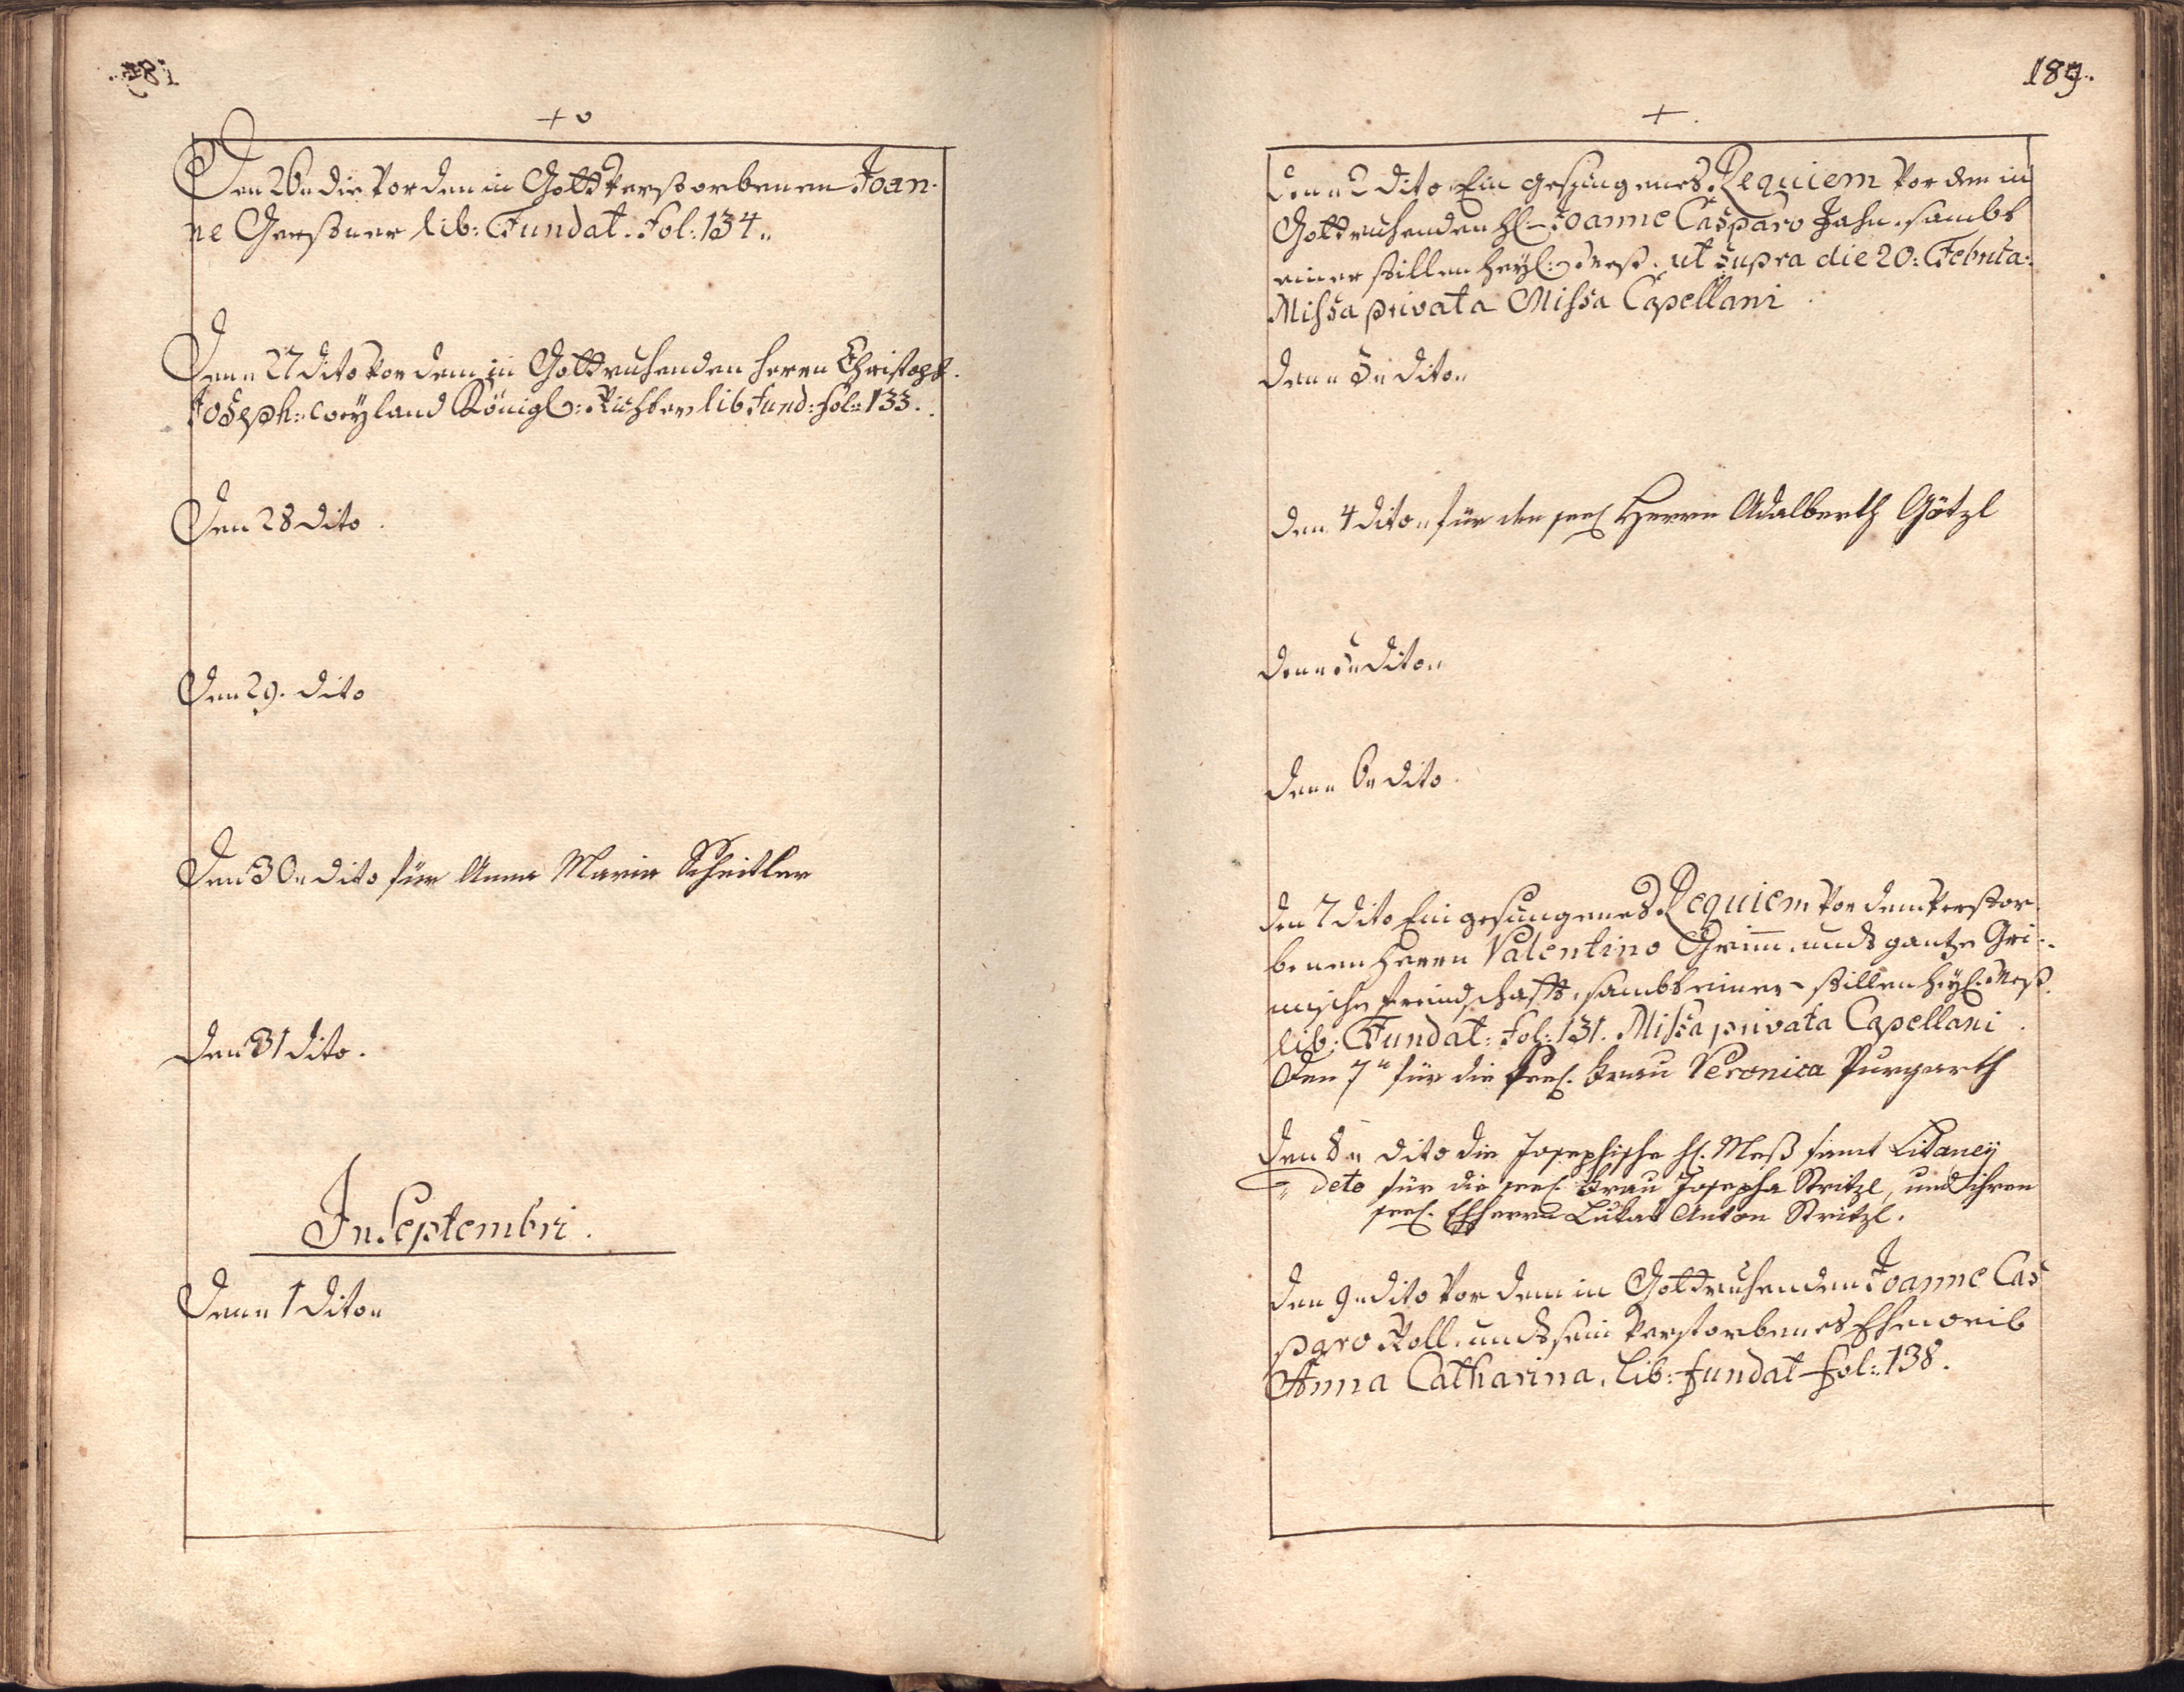 + 0
Den 26 „ die vor den in Gott verstorbenen Joan-
ne Gerstner lib: Fundat: Fol: 134 „
Den „ 27 dito vor dem in Gott ruhenden Herrn Christoph
Joseph: weyland Königl: Richter lib fund: fol: 133.
Den 28 dito .
Den 29. dito
Den 30 „ dito für Anna Maria Scheitler
Den 31 dito .
In Septembri .
Den „ 1 dito „
189.
+
Den „ 2 dito Ein gesungenes Requiem vor dem in
Gott ruhenden H: Joanne Casparo Jahn sambt
einer stillen Heyl: Mess. ut supra die 20:
Missa privata Missa Capellani
Den „ 3 „ dito „
Den 4 dito „ für den seel Herrn Adalberth Götzl
Den „ 5 „ dito „
Den „ 6 „ dito
Den 7 dito Ein gesungenes Requiem vor dem verstor-
benen Herrn Valentino Grim̄ . undt gantze Gri-
mische freindschafft, sambt einer stillen Heyl: Mess
lib: Fundat: Fol: 131. Missa privata Capellani .
Den 7 " für die seel. Frau Veronica Purgarth
Den 8 „ dito die Josephische hl. Meß samt Litaney
" deto für die seel. Frau Josepha Stritzl, und ihren
seel. Ehherrn Lukas Anton Stritzl.
Den 9 „ dito vor dem in Gott ruhenden Joanne Cas
paro Roll. undt sein verstorbenes Eheweib
Anna Catharina, lib: fundat fol: 138.